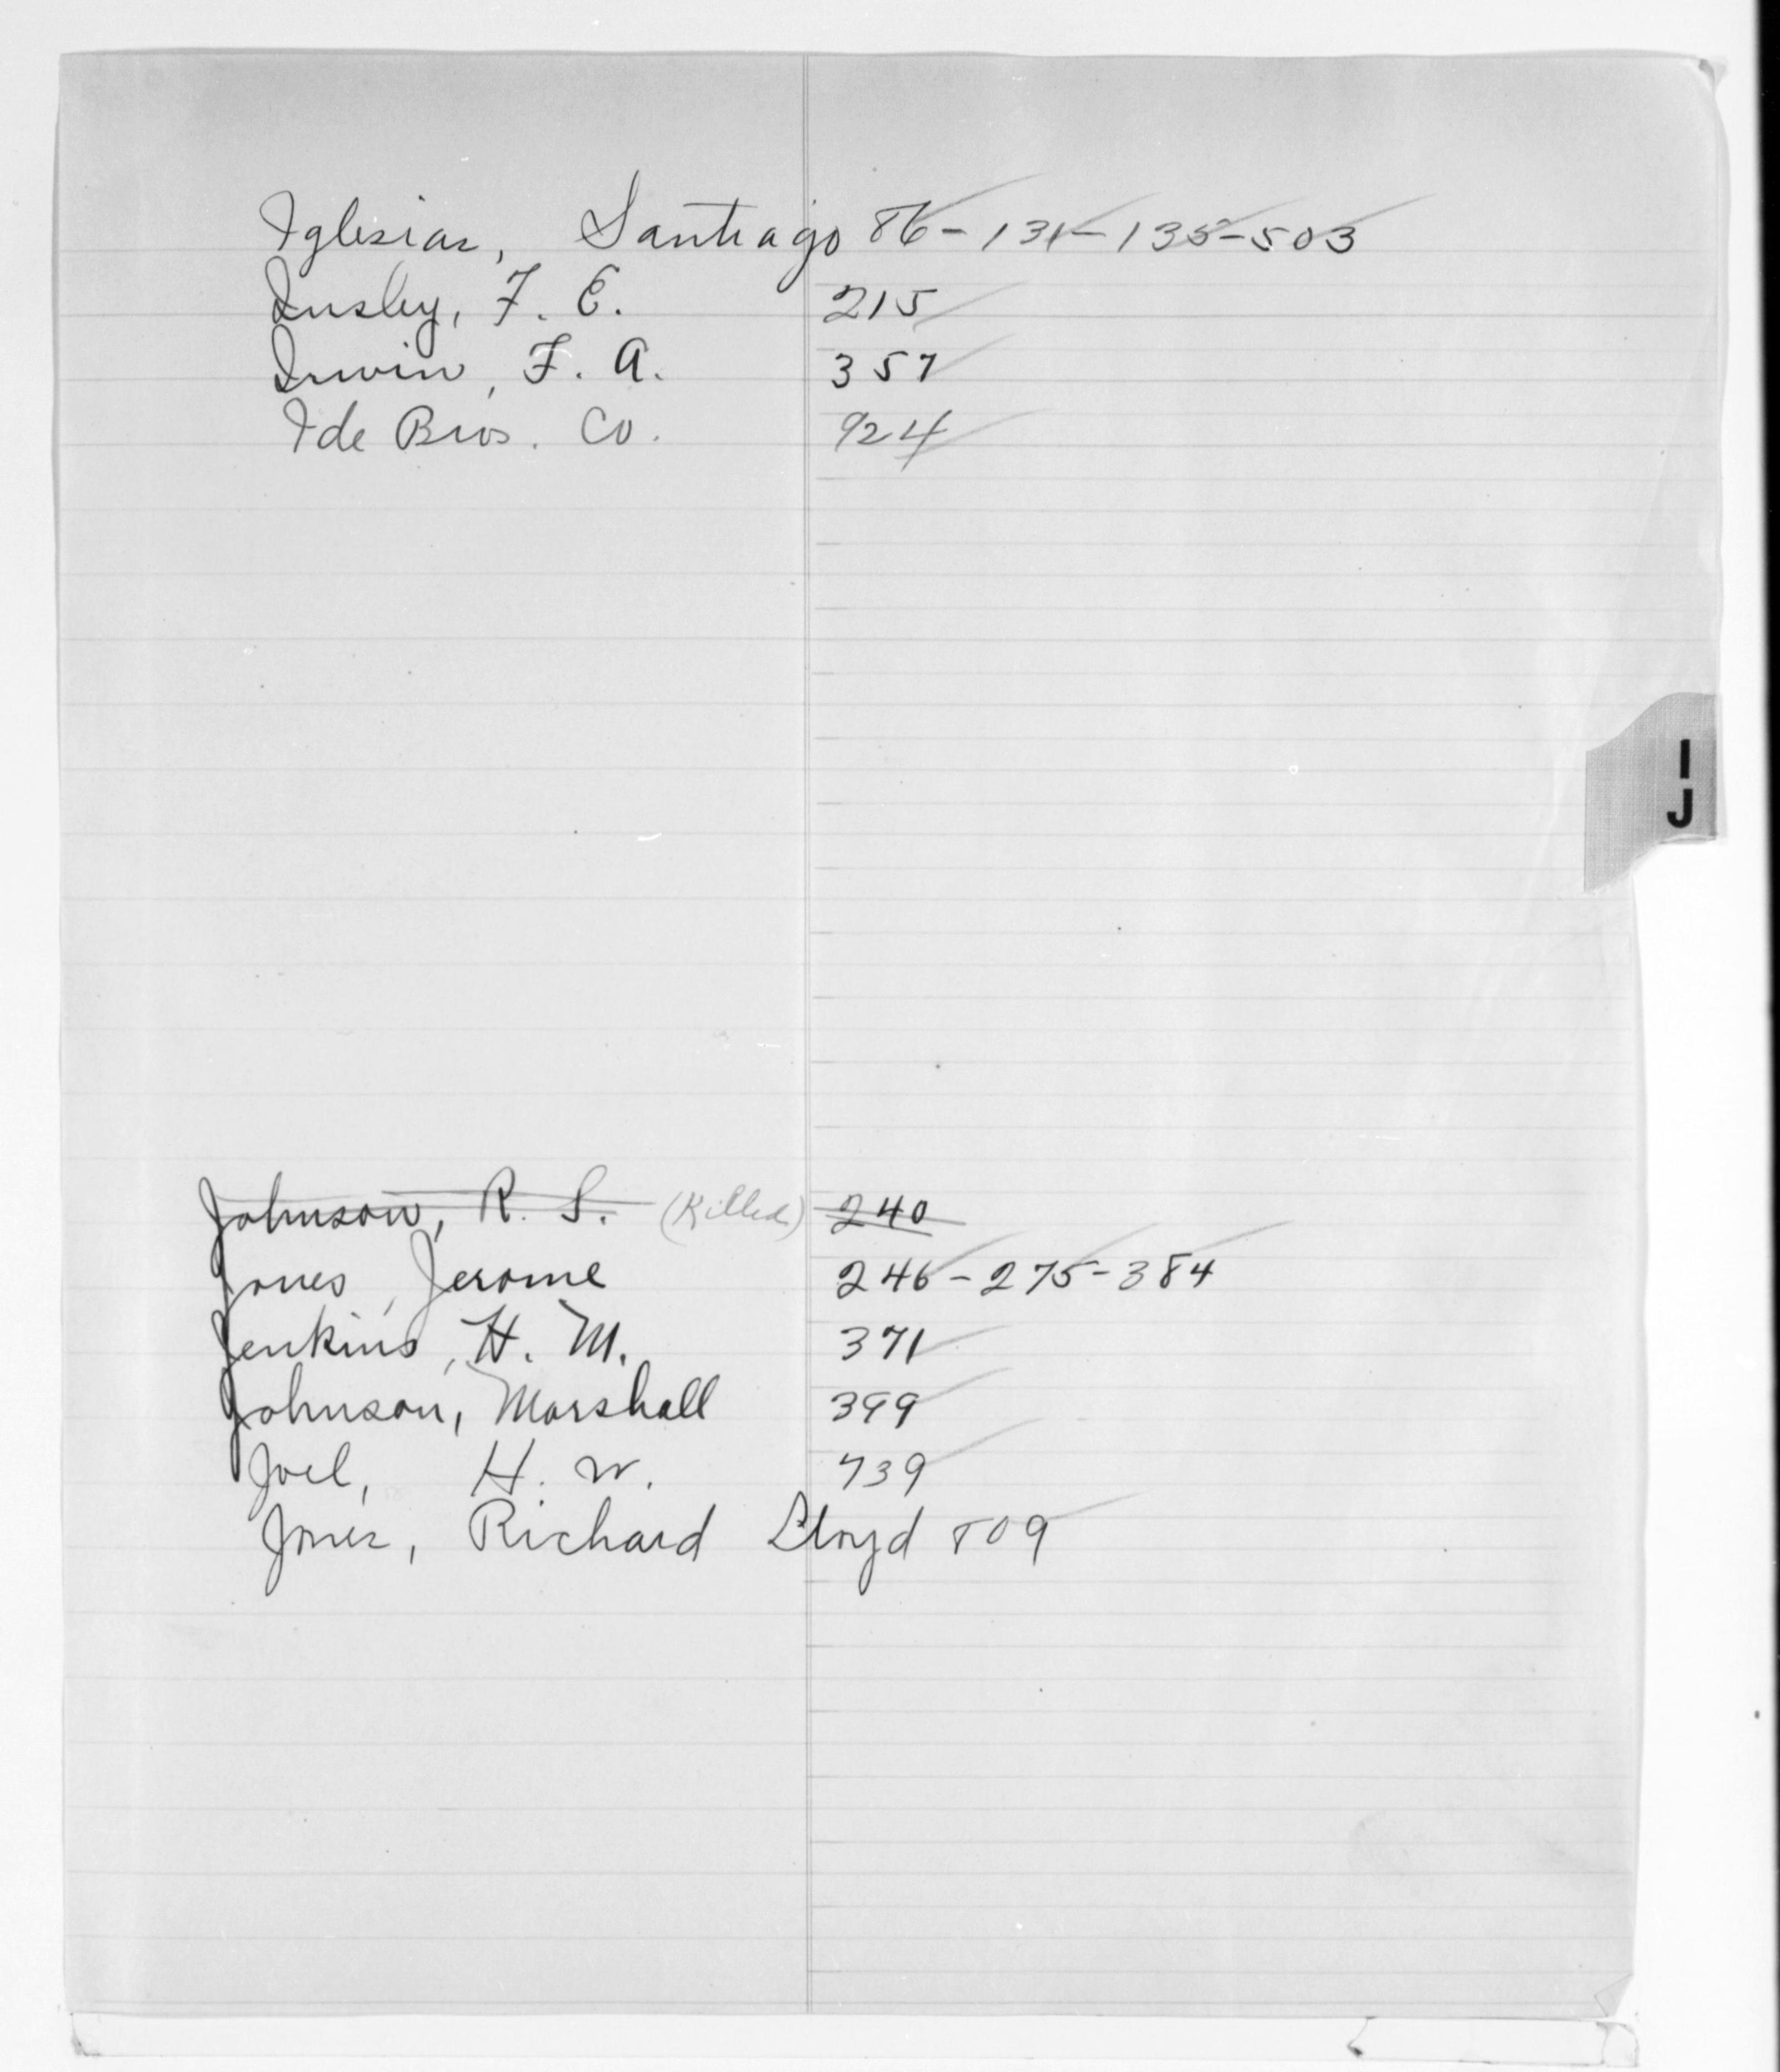 Iglesias, Santiago 86-131-135-503
Insley, F. E. 215
Irwin, F. A. 357
Ide Bros. Co. 924
I
J
Johnson, R. S. (Killed) 240
Jones, Jerome 246-275-384
Jenkins, H. M. 371
Johnson, Marshall 399
Joel, H. W. 739
Jones, Richard Lloyd 809